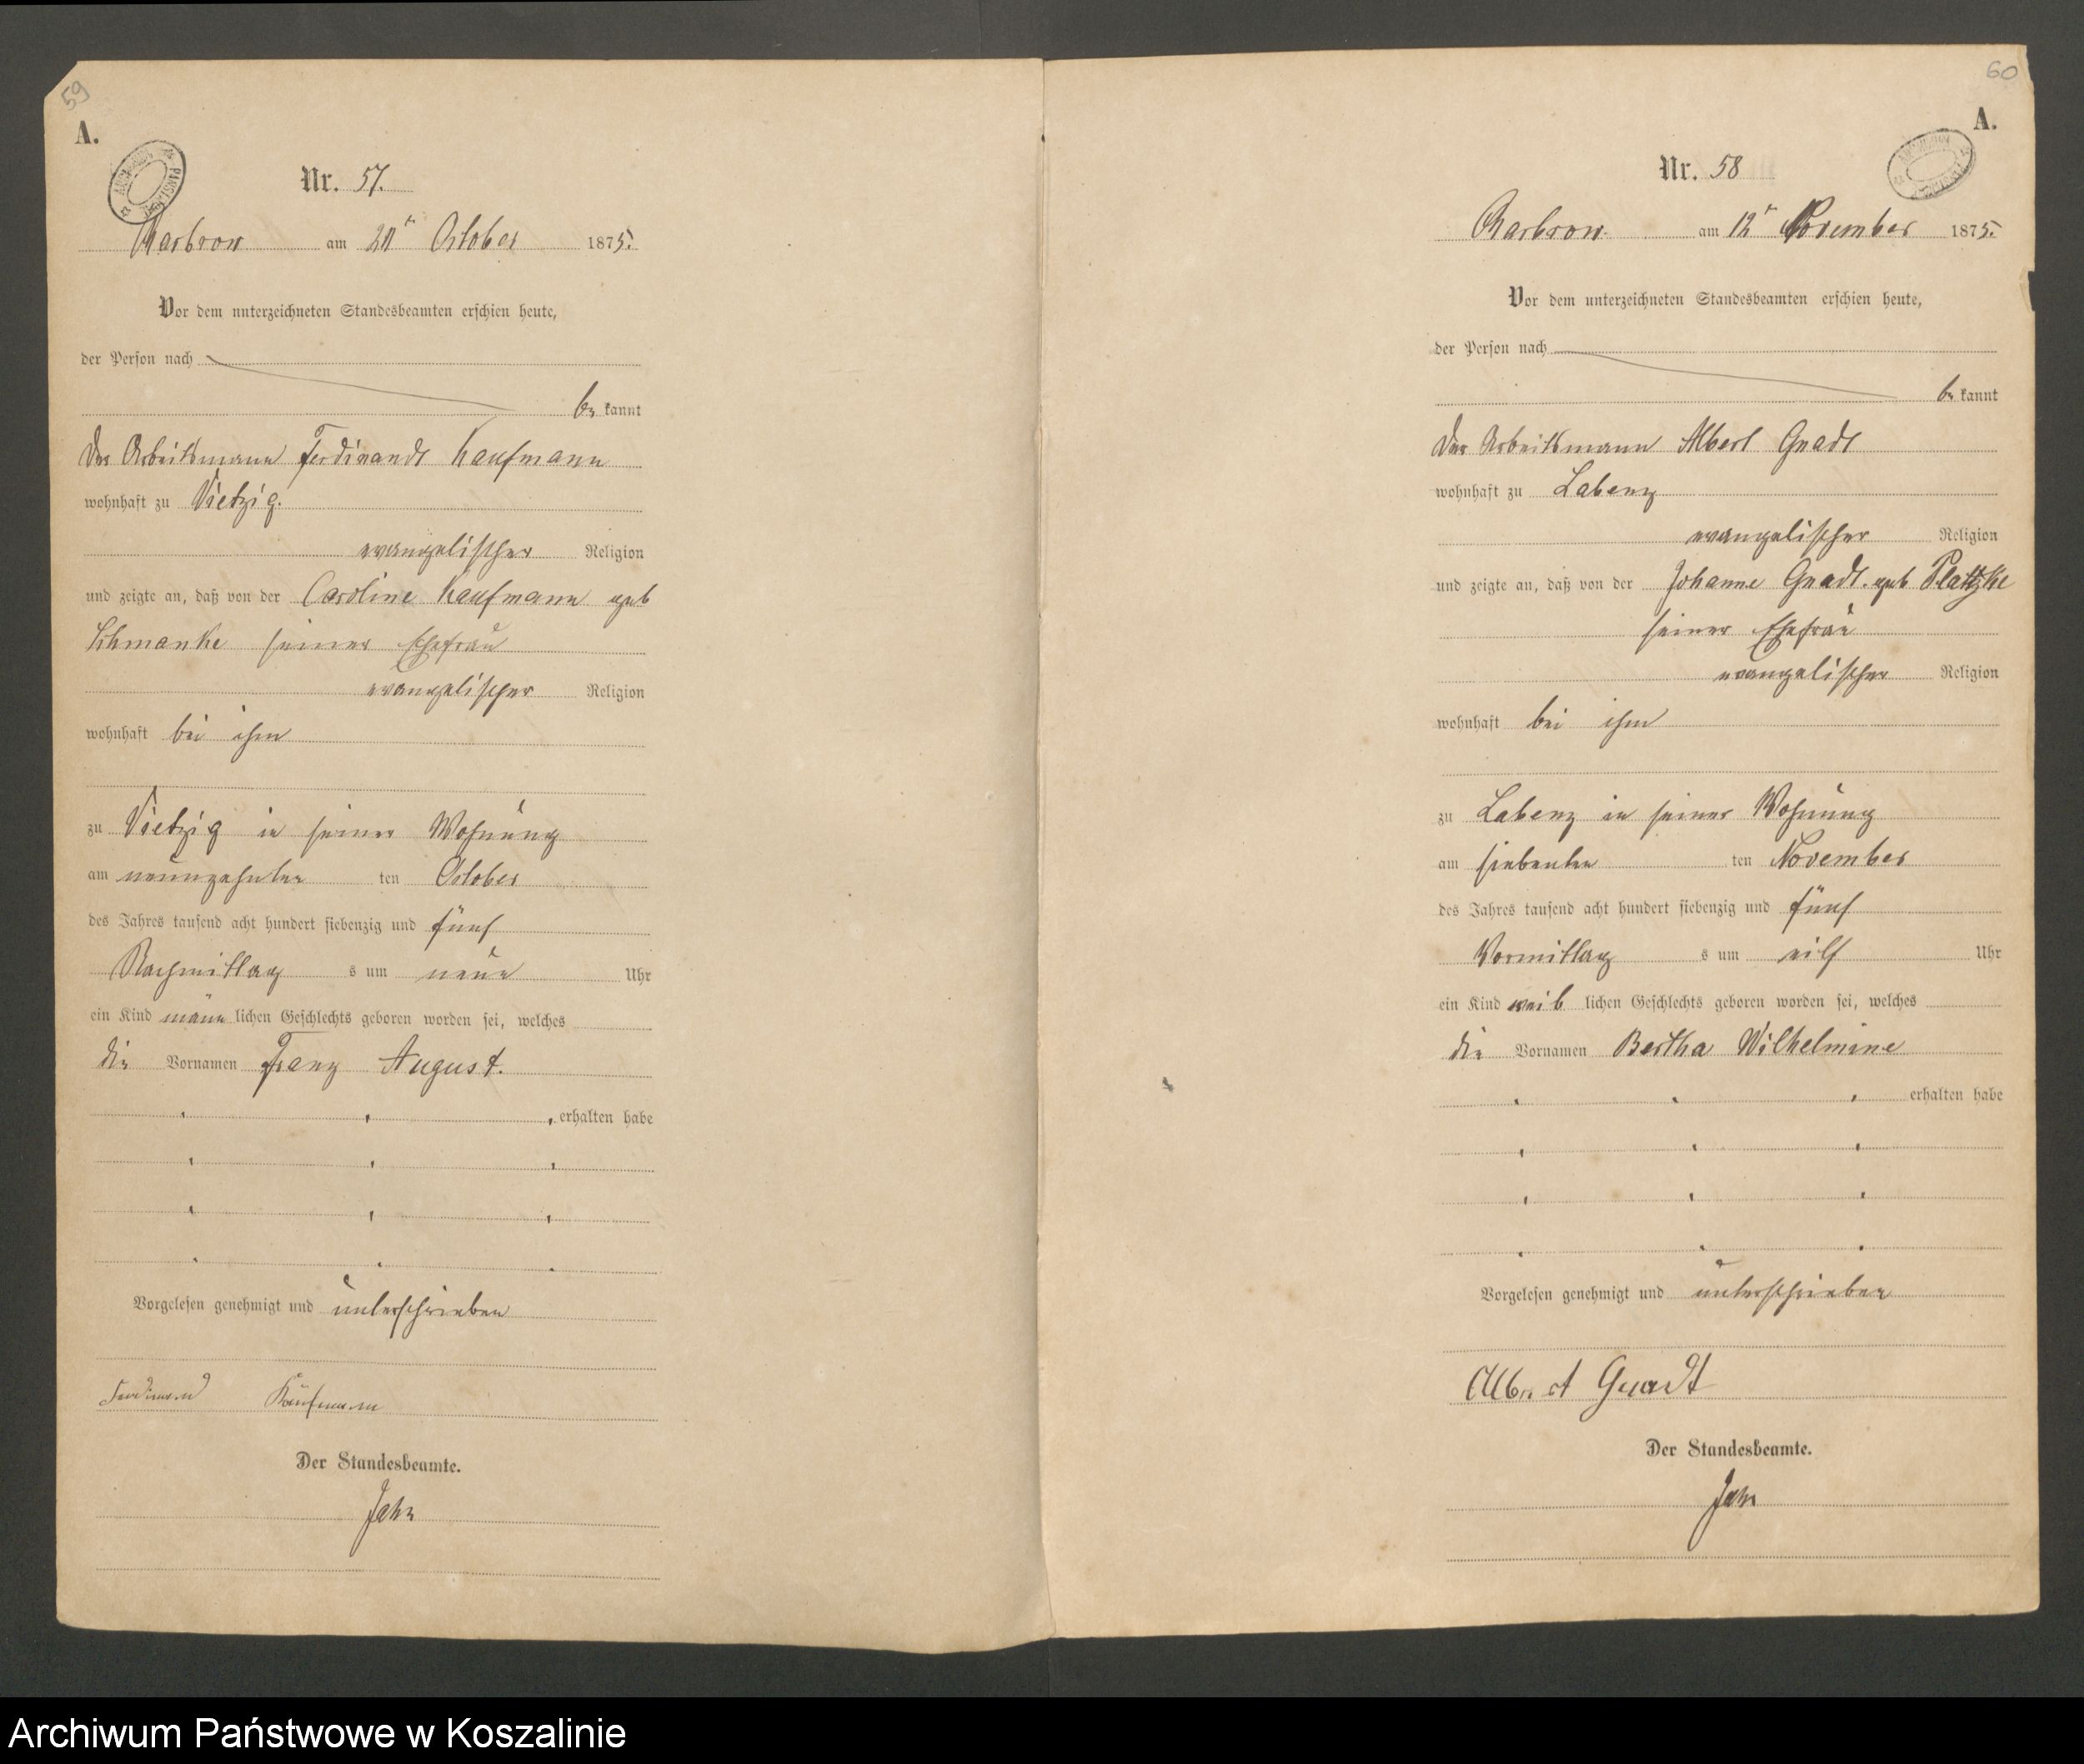 59
A.
Nr. 57.
am 20t October 1875.
Vor dem unterzeichneten Standesbeamten erschien heute,
der Person nach
be kannt
Der Arbeitsmann Ferdinandt Kaufmann
wohnhaft zu Vietzig.
evangelischer Religion
und zeigte an, daß von der Caroline Kaufmann geb
Schmanke seiner Ehefrau
evangelischer Religion
wohnhaft bei ihm
zu Vietzig in seiner Wohnung
am neunzehnten ten October
des Jahres tausend acht hundert siebenzig und fünf
Nachmittag s um neun Uhr
ein Kind männ lichen Geschlechts geboren worden sei, welches
die Vornamen Franz August.
erhalten habe
Vorgelesen genehmigt und unterschrieben
Ferdinand Kaufmann
Der Standesbeamte.
Jahn
60
A.
Nr. 58
am 12t November 1875.
Vor dem unterzeichneten Standesbeamten erschien heute,
der Person nach
be kannt
Der Arbeitsmann Albert Gnadt
wohnhaft zu Labenz
evangelischer Religion
und zeigte an, daß von der Johanne Gnadt geb Platzke
seiner Ehefrau
evangelischer Religion
wohnhaft bei ihm
zu Labenz in seiner Wohnung
am siebenten ten November
des Jahres tausend acht hundert siebenzig und fünf
Vormittag s um eilf Uhr
ein Kind weib lichen Geschlechts geboren worden sei, welches
die Vornamen Bertha Wilhelmine
erhalten habe
Vorgelesen genehmigt und unterschrieben
Albert Gnadt
Der Standesbeamte.
Jahn
Archiwum Państwowe w Koszalinie